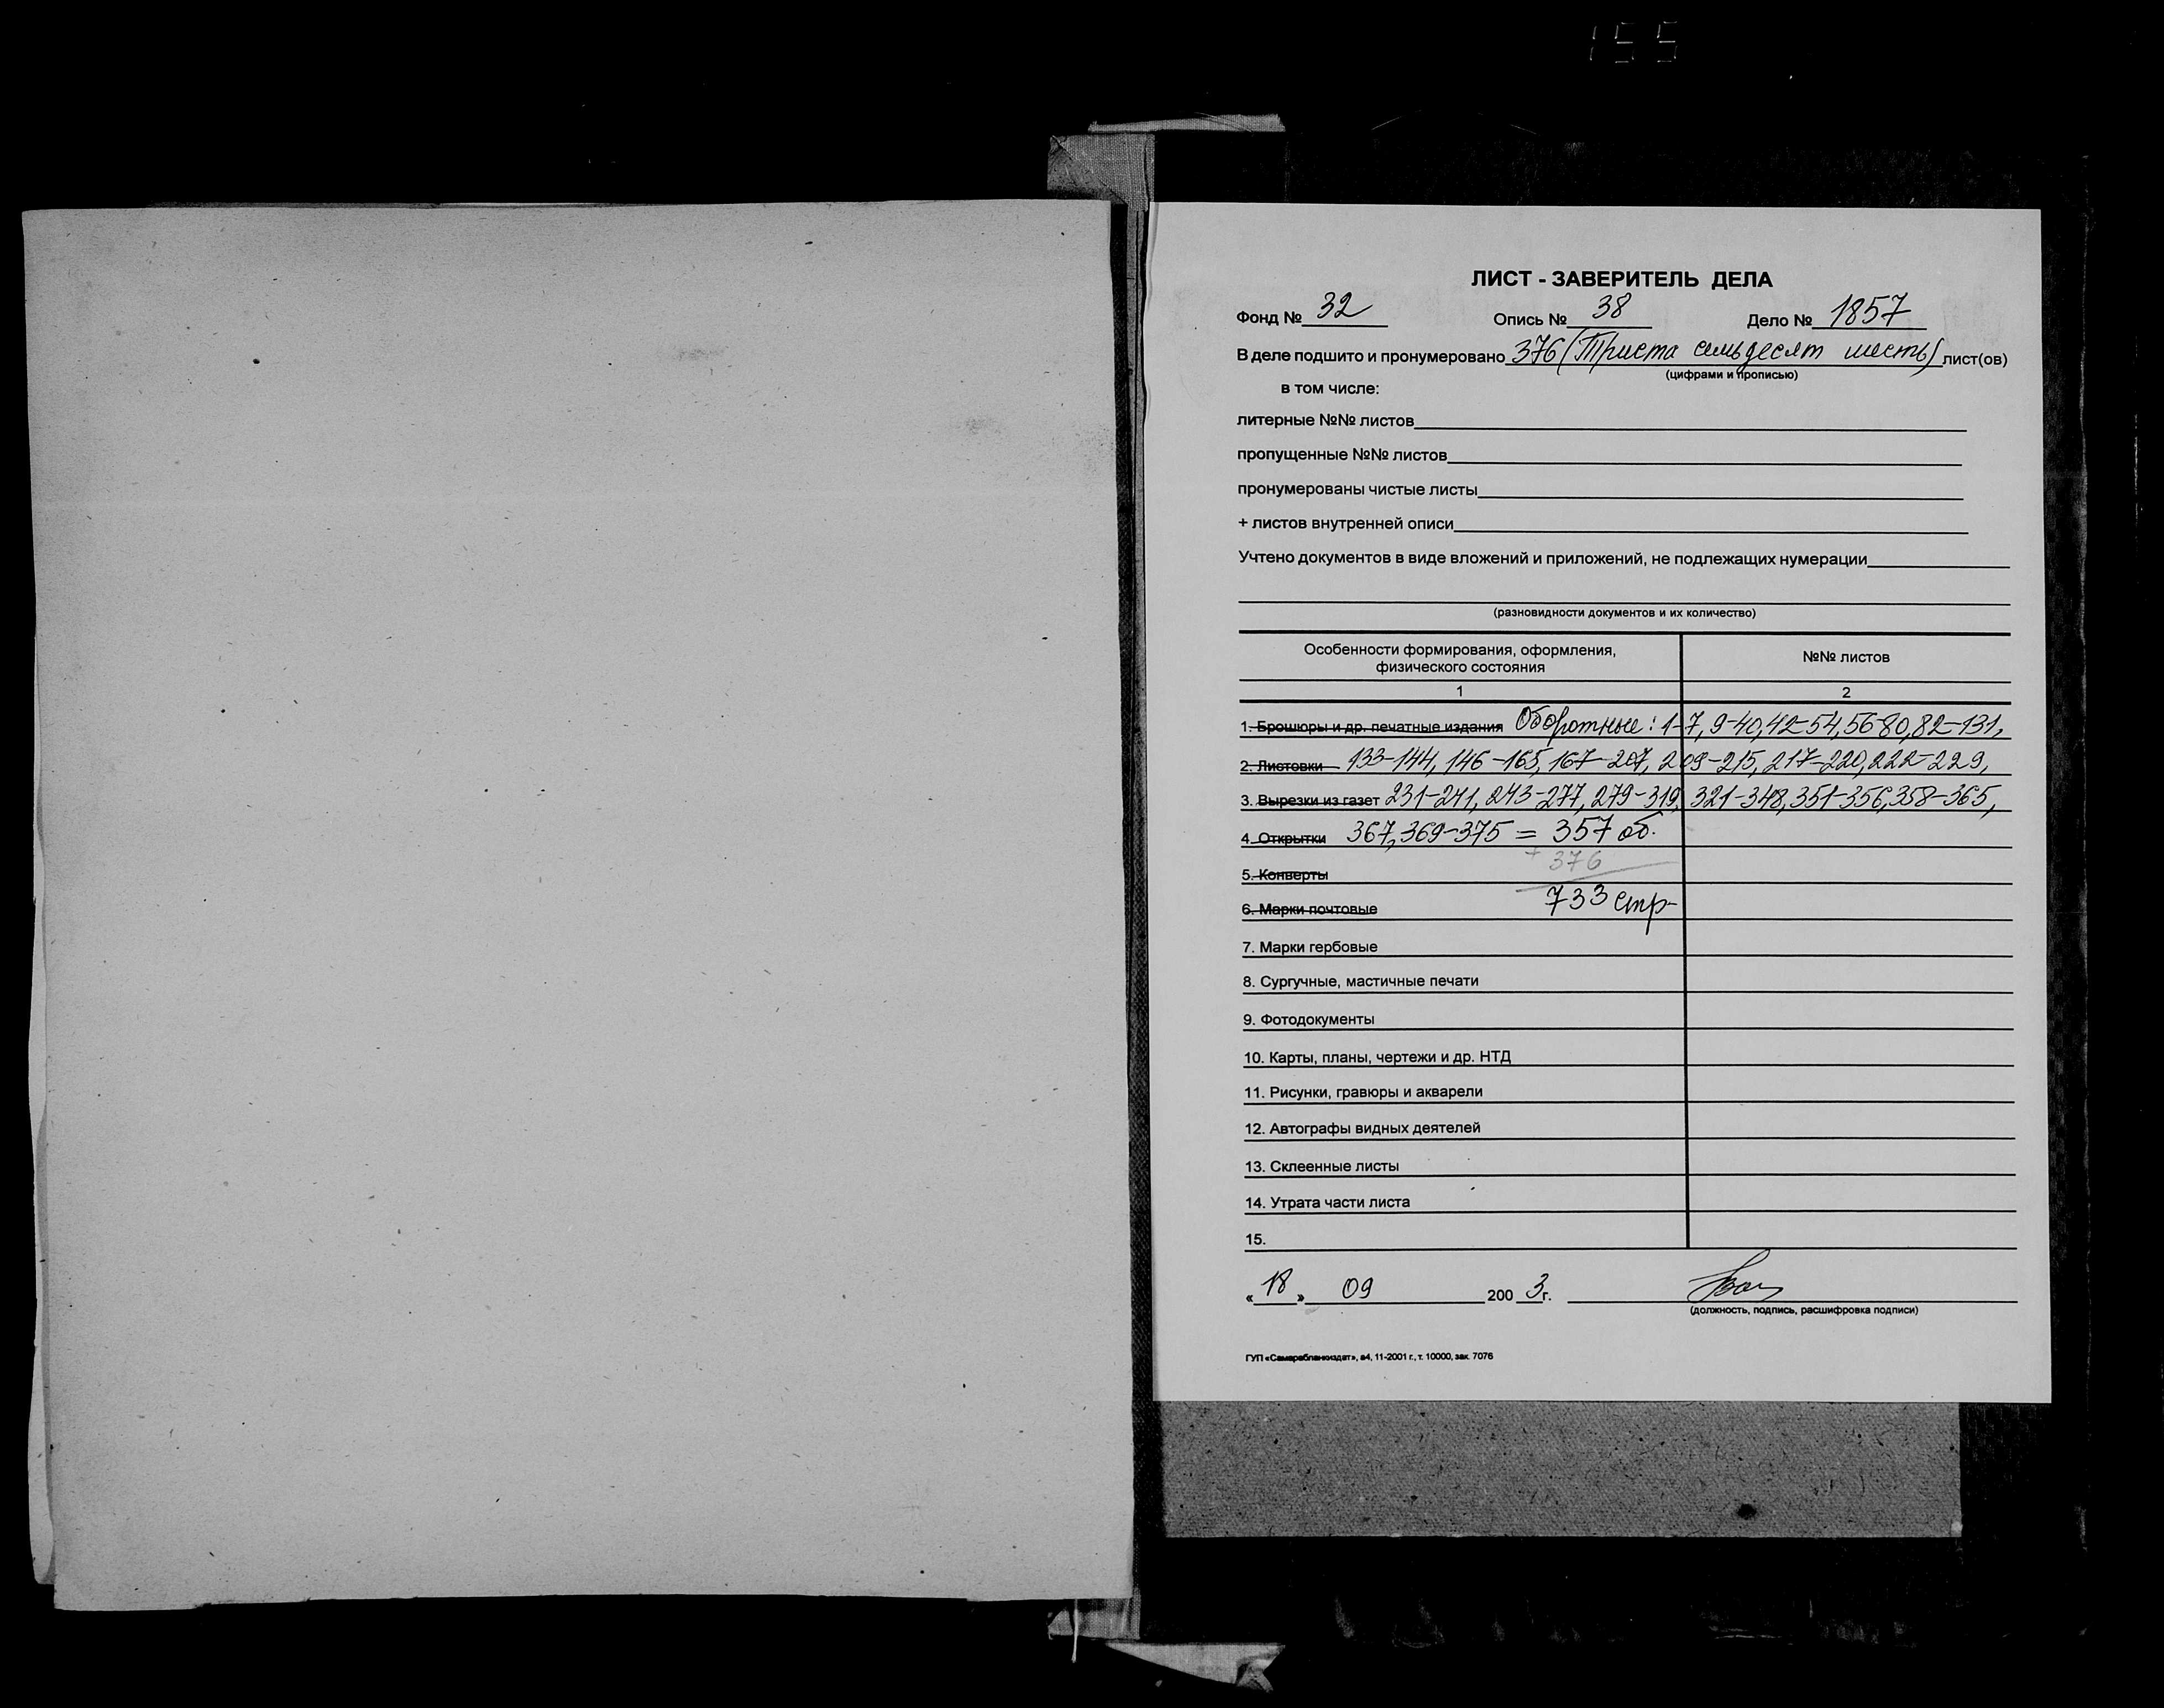 155
ЛИСТ - ЗАВЕРИТЕЛЬ ДЕЛА
Фонд № 32 Опись № 38 Дело № 1857
В деле подшито и пронумеровано 376 (Триста семьдесят шесть) лист(ов)
(цифрами и прописью)
в том числе:
литерные №№ листов
пропущенные №№ листов
пронумерованы чистые листы
+ листов внутренней описи
Учтено документов в виде вложений и приложений, не подлежащих нумерации
(разновидности документов и их количество)
Особенности формирования, оформления, №№ листов
физического состояния
1 2
1. Брошюры и др. печатные издания Оборотные: 1-7, 9-40, 42-54, 56-80, 82-131,
2. Листовки 133-144, 146-165, 167-207, 209-215, 217-220, 222-229,
3. Вырезки из газет 231-241, 243-277, 279-319, 321-348, 351-356, 358-365,
4. Открытки 367, 369-375 = 357 об.
+ 376
5. Конверты
6. Марки почтовые 733 стр
7. Марки гербовые
8. Сургучные, мастичные печати
9. Фотодокументы
10. Карты, планы, чертежи и др. НТД
11. Рисунки, гравюры и акварели
12. Автографы видных деятелей
13. Склеенные листы
14. Утрата части листа
15.
« 18 » 09 200 3 г.
(должность, подпись, расшифровка подписи)
ГУП «Самарабланкиздат», а4, 11-2001 г., т. 10000, зак. 7076